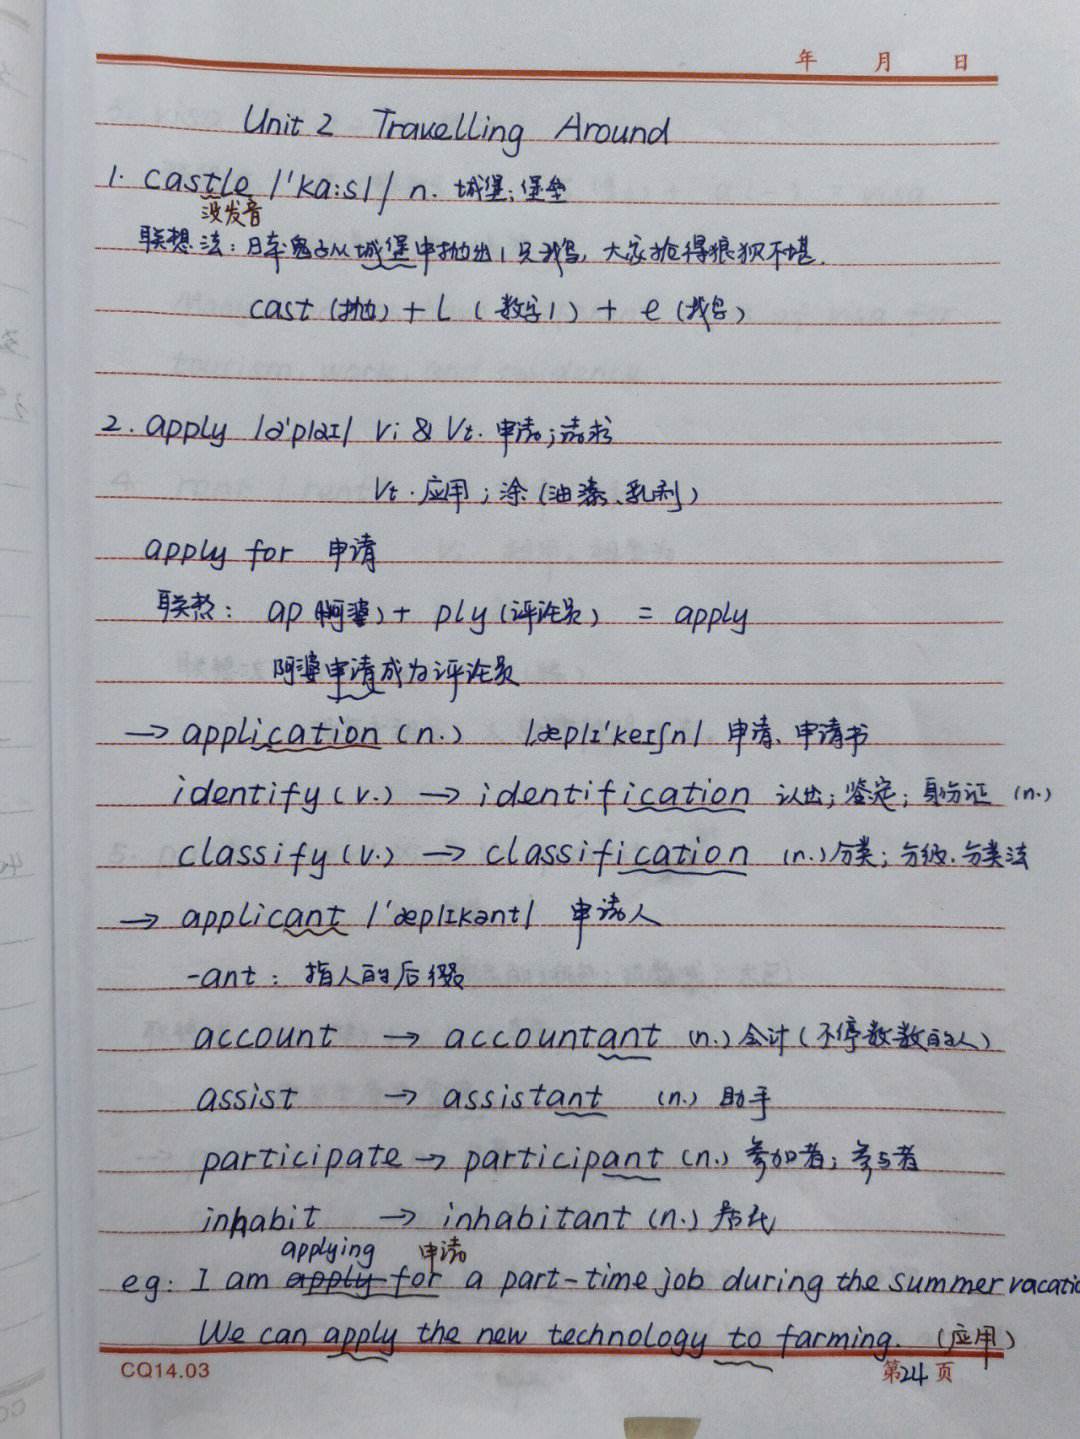 年 月 日
Unit 2 Travelling Around
1. castle /'ka:sl/ n. 城堡;堡垒
没发音
联想法:日本鬼子从城堡中抛出1只鹅,大家抢得狼狈不堪.
cast (抛) + L (数字1) + e (鹅)
2. apply /ə'plaɪ/ vi & vt. 申请;请求
vt. 应用;涂(油漆、乳剂)
apply for 申请
联想: ap (阿婆) + ply (评论员) = apply
阿婆申请成为评论员
→ application (n.) /æplɪ'keɪʃn/. 申请、申请书
identify (v.) → identification 认出;鉴定;身份证 (n.)
classify (v.) → classification (n.) 分类;分级.分类法
→ applicant /'æplɪkənt/ 申请人
-ant: 指人的后缀
account → accountant (n.) 会计(不停数数的人)
assist → assistant (n.) 助手
participate → participant (n.) 参加者;参与者
inhabit → inhabitant (n.) 居民
applying 申请
eg: I am apply for a part-time job during the summer vacatio
We can apply the new technology to farming. (应用)
CQ14.03 第24页